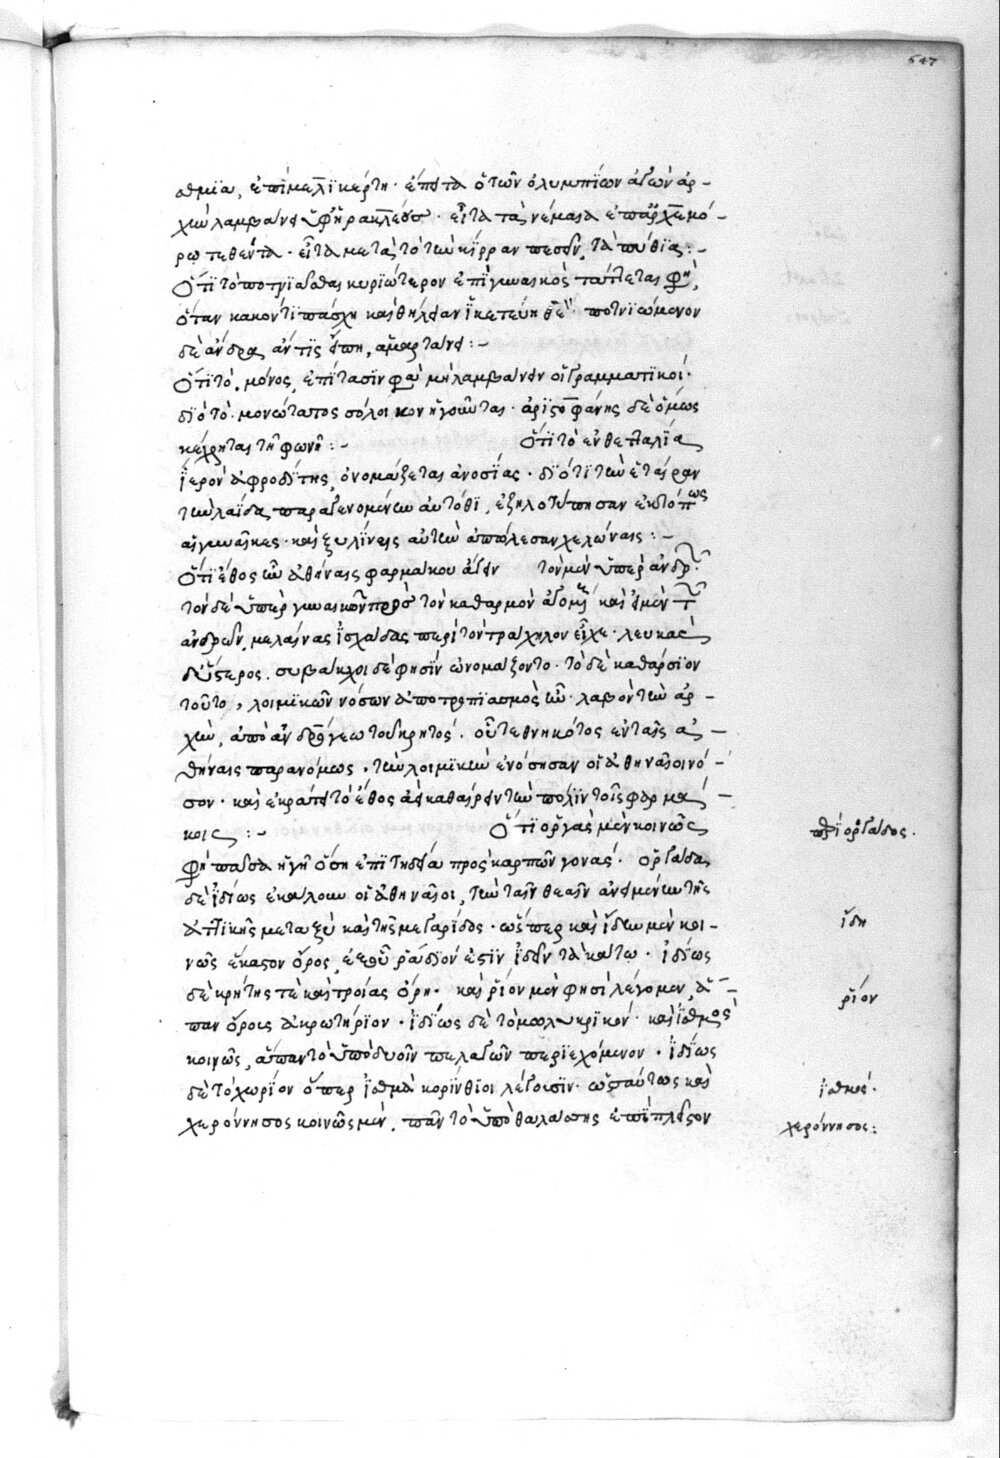 547
σθμια, ἐπὶ μελικέρτη· ἔπειτα ὁ τῶν ὀλυμπίων ἀγὼν ἀρ-
χὴν λαμβάνει ὑφ' ἡρακλέους· εἶτα τὰ νέμεα ἐπ' ἀρχεμό-
ρω τεθέντα· εἶτα μετὰ τὸ τὴν κίρραν πεσεῖν, τὰ πύθια:-
Ὅτι τὸ ποτνιᾶσθαι κυριώτερον ἐπὶ γυναικὸς τάττεται φη,
ὅταν κακόν τι πάσχη καὶ θήλειαν ἱκετεύη θεόν· ποτνιώμενον
δὲ ἄνδρα ἄν τις εἴπη, ἁμαρτάνει:-
Ὅτι τὸ μόνος, ἐπίτασιν φασὶ μὴ λαμβάνειν οἱ γραμματικοί·
διὸ τὸ μονώτατος σόλοικον ἡγοῦνται· ἀριστοφάνης δὲ ὅμως
κέχρηται τῆ φωνῆ:- Ὅτι τὸ ἐν θετταλία
ἱερὸν ἀφροδίτης, ὀνομάζεται ἀνοσίας· διότι τὴν ἑταίραν
τὴν λαΐδα παραγενομένην αὐτόθι, ἐζηλοτύπησαν ἐκτόπως
αἱ γυναῖκες· καὶ ξυλίναις αὐτὴν ἀπώλεσαν χελώναις:-
Ὅτι ἔθος ἦν ἀθήναις φαρμακοὺς ἄγειν τὸν μὲν ὑπὲρ ἀνδρῶν·
τὸν δὲ ὑπὲρ γυναικῶν πρὸς τὸν καθαρμὸν ἀγομένους καὶ ὁ μὲν τῶν
ἀνδρῶν, μελαίνας ἰσχάδας περὶ τὸν τράχηλον εἶχε· λευκὰς
δ' ἅτερος. συβάκχοι δέ φησιν ὠνομάζοντο· τὸ δὲ καθάρσιον
τοῦτο, λοιμικῶν νόσων ἀποτροπιασμὸς ἦν· λαβὸν τὴν ἀρ-
χὴν, ἀπὸ ἀνδρόγεω τοῦ κρητός· οὗ τεθνηκότος ἐν ταῖς ἀ-
θήναις παρανόμως, τὴν λοιμικὴν ἐνόσησαν οἱ ἀθηναῖοι νό-
σον· καὶ ἐκράτει τὸ ἔθος ἀεὶ καθαίρειν τὴν πόλιν τοῖς φαρμα-
κοις:- Ὅτι ὀργὰς μὲν κοινῶς
φη πᾶσα ἡ γῆ ὅση ἐπιτηδεία πρὸς καρπῶν γονάς· ὀργάδα
δὲ ἰδίως ἐκάλουν οἱ ἀθηναῖοι, τὴν ταῖν θεαῖν ἀνειμένην τῆς
ἀττικῆς μεταξὺ καὶ τῆς μεγαρίδος· ὥσπερ καὶ ἴδην μὲν κοι-
νῶς ἕκαστον ὄρος, ἐξ οὗ ῥάδιόν ἐστιν ἰδεῖν τὰ κάτω· ἰδίως
δὲ κρήτης τὲ καὶ τροίας ὄρη· καὶ ῥίον μὲν φησὶ λέγομεν, ἅ-
παν ὄρους ἀκρωτήριον· ἰδίως δὲ τὸ μολυκρικόν· καὶ ἰσθμος
κοινῶς, ἅπαν τὸ ὑπὸ δυοῖν πελαγῶν περιεχόμενον· ἰδίως
δὲ τὸ χωρίον ὅπερ ἰσθμὸν κορίνθιοι λέγουσιν· ὡσαύτως καὶ
χερόννησος κοινῶς μὲν, πᾶν τὸ ὑπὸ θαλάσσης ἐπὶ πλεῖστον
περὶ ὀργάδος.
ἴδη
ῥίον
ἰσθμός.
χερόννησος: